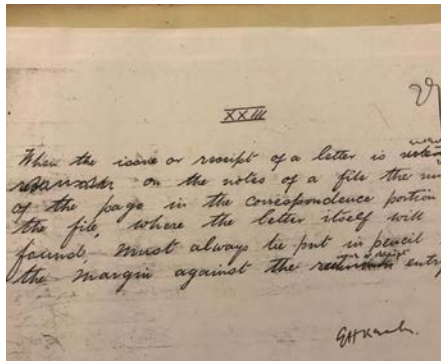 XXIII
When the issue or receipt of a letter is
on the notes of a file the
of the page in the correspondence portion
the file, where the letter itself will
found, must always be put in pencil
the margin against the entry